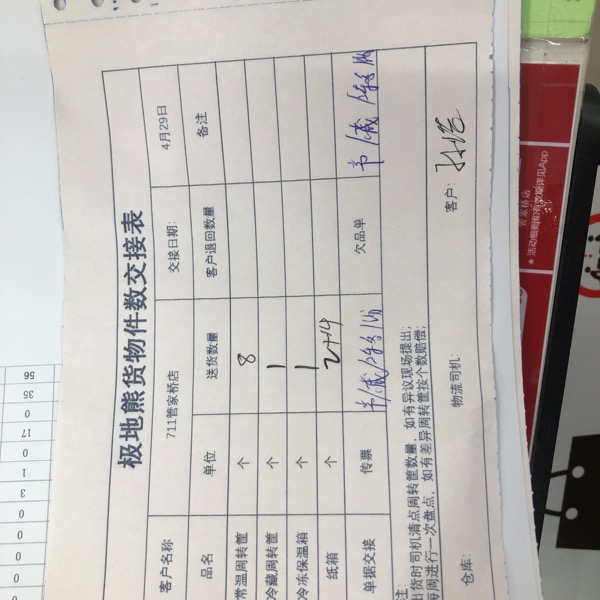 极地熊货物件数交接表
客户名称 711管家桥店 交接日期: 4月29日
品名 单位 送货数量 客户退回数量 备注
常温周转筐 个 8
冷藏周转筐 个 1
冷冻保温箱 个 1
纸箱 个 2+4
单据交接 传票 欠品单
注:
出货时司机清点周转筐数量，如有异议现场提出;
每周进行一次盘点，如有差异周转筐按个数赔偿;
仓库: 物流司机: 客户:
管家桥店
★ 活动细则和有效期详见App
56
35
0
17
0
1
3
0
0
0
0